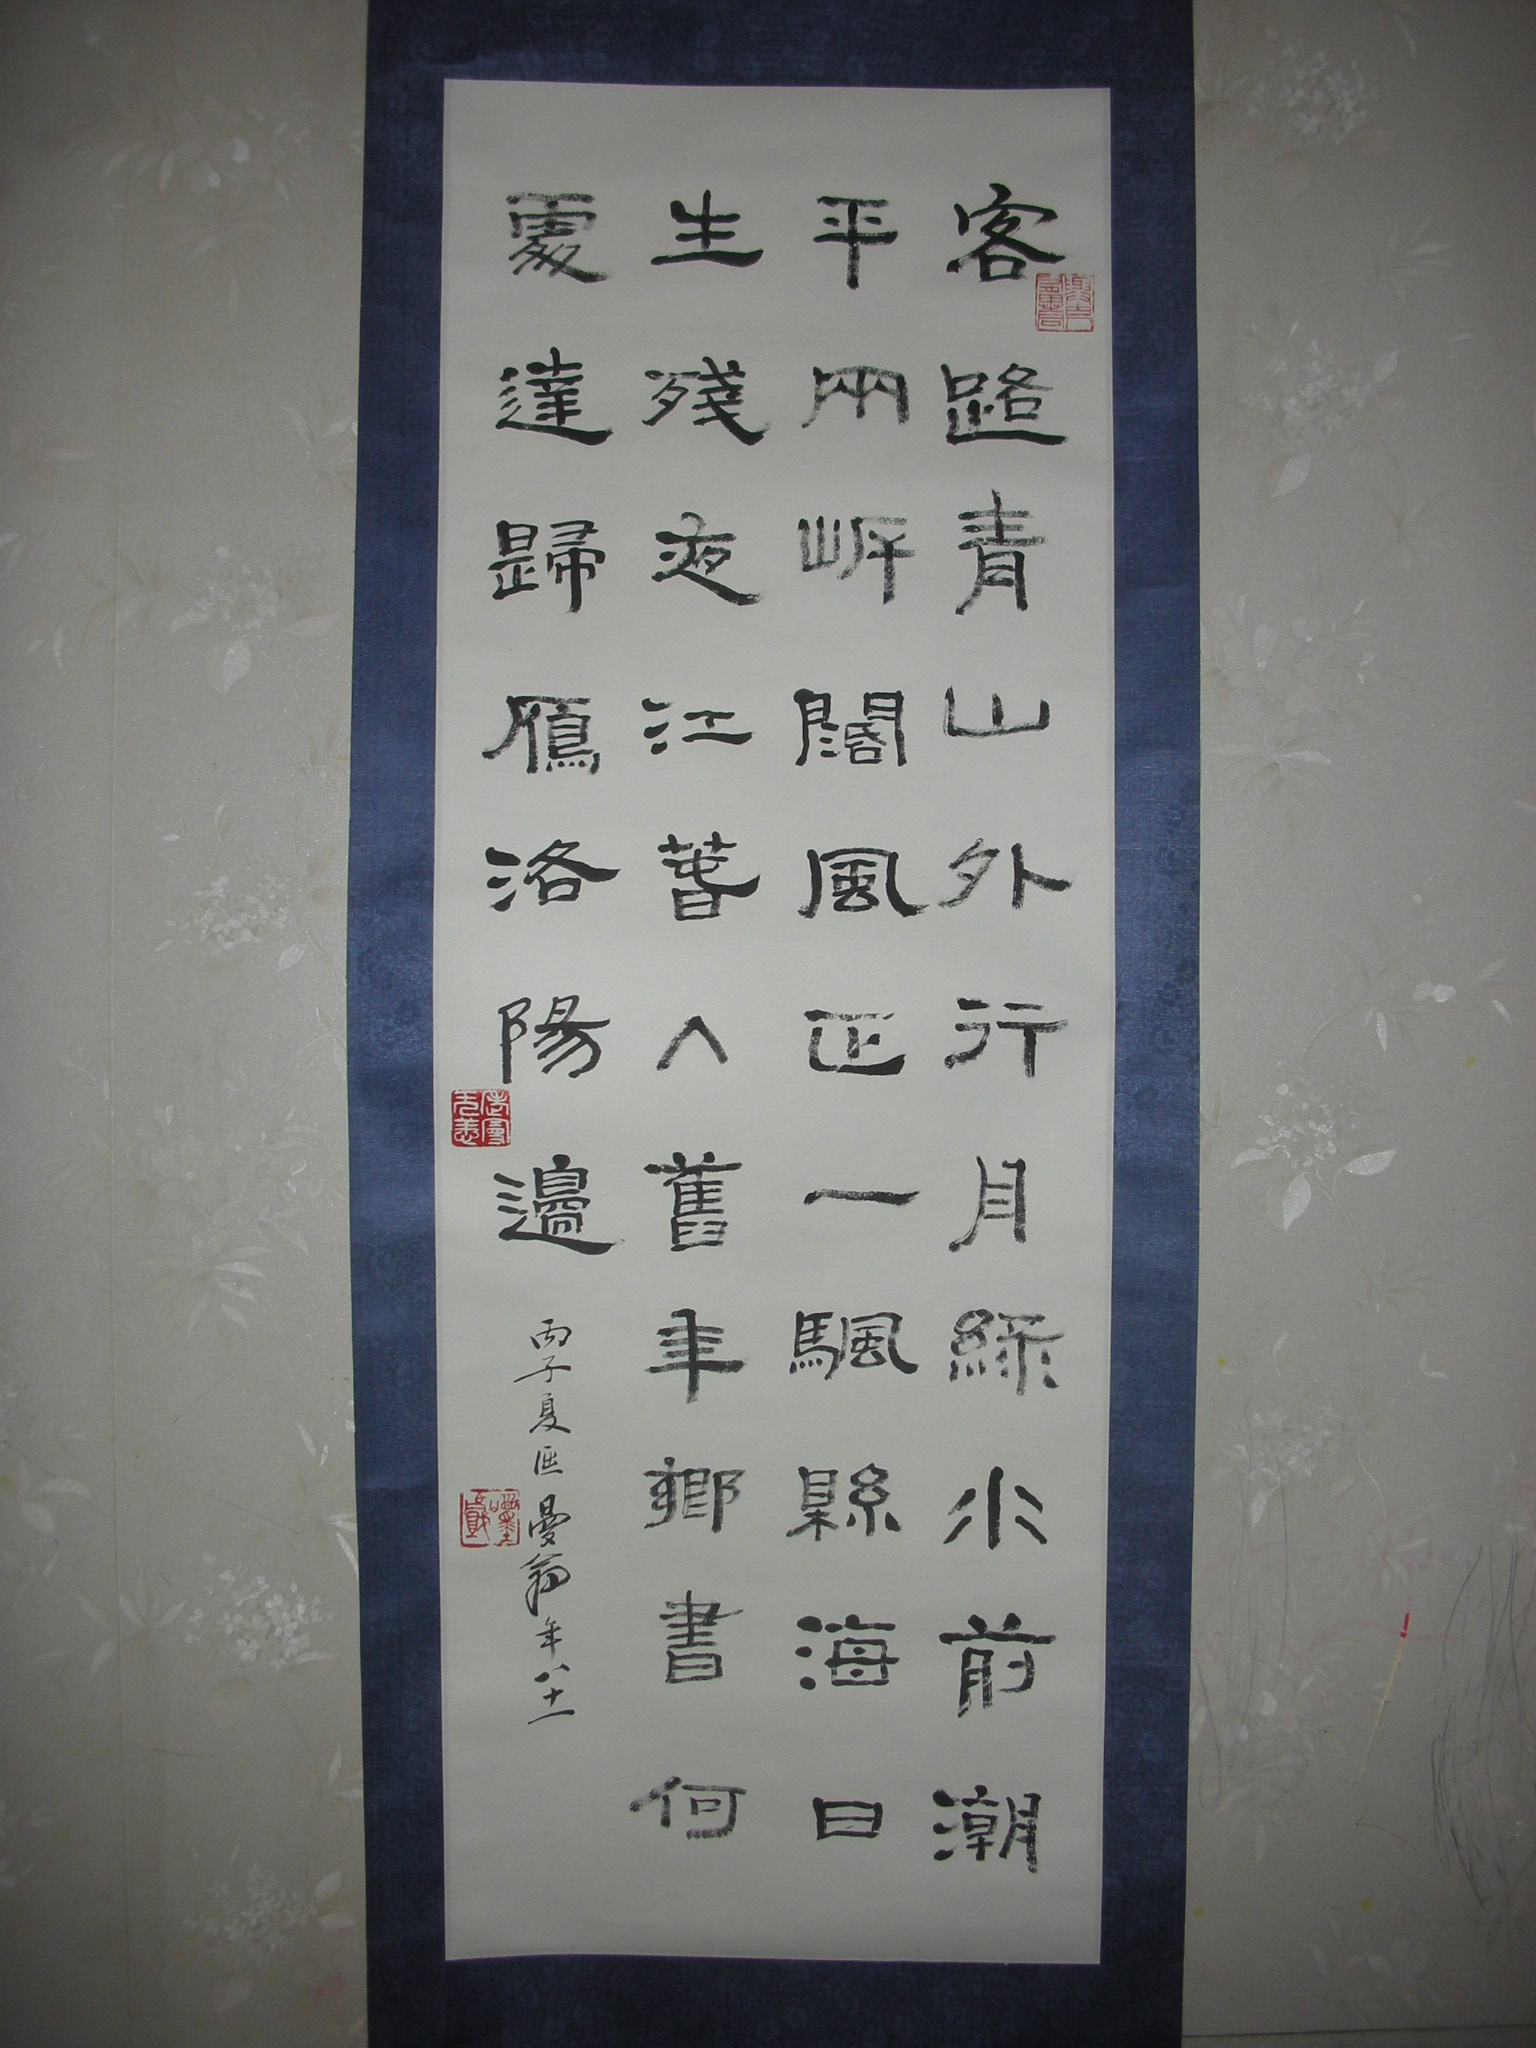 客路青山外行舟綠水前潮
平兩岸闊風正一颿縣海日
生殘夜江暮入舊年鄉書何
處達歸鴈洛陽邊
丙子夏曼翁年八十一